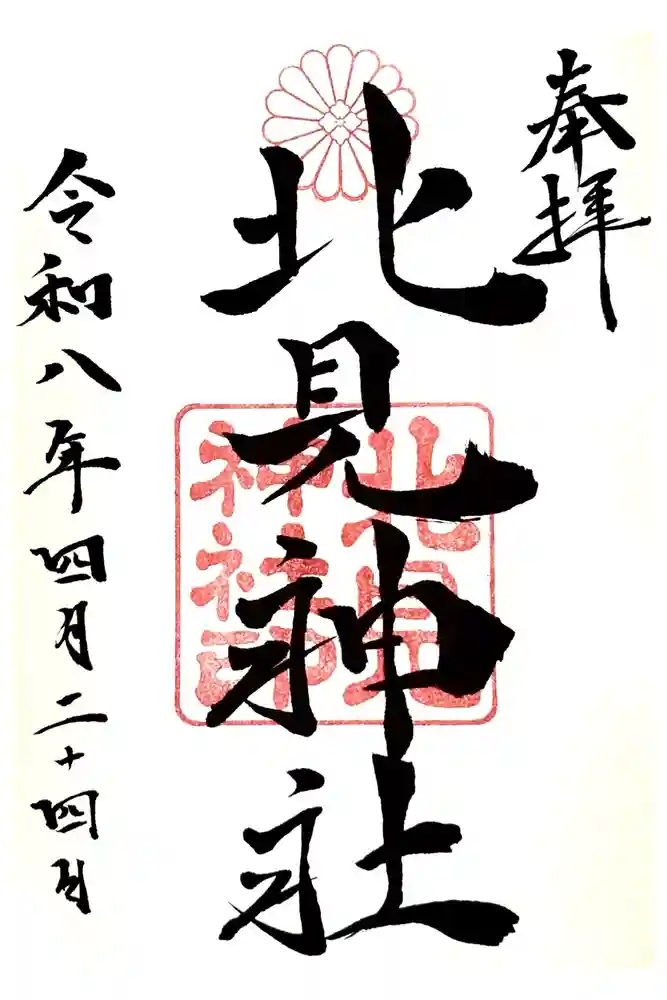 奉拝
北見神社
北見
神社印
令和八年四月二十四日